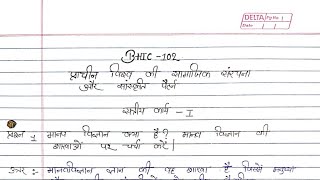 DELTA Pg No.
Date
BHIC-102
प्राचीन विश्व की सामाजिक संरचना
और सांस्कृतिक पैटर्न
सत्रीय कार्य - I
प्रश्न 1 मानव विज्ञान क्या है? मानव विज्ञान की
शाखाओं पर चर्चा करें।
उत्तर :- मानवविज्ञान ज्ञान की वह शाखा है जिसमें मनुष्य